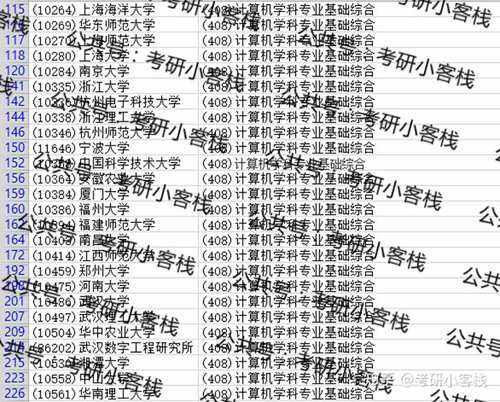 115 (10264)上海海洋大学 (408)计算机学科专业基础综合
116 (10269)华东师范大学 (408)计算机学科专业基础综合
117 (10270)上海师范大学 (408)计算机学科专业基础综合
118 (10280)上海大学 (408)计算机学科专业基础综合
120 (10284)南京大学 (408)计算机学科专业基础综合
141 (10335)浙江大学 (408)计算机学科专业基础综合
142 杭州电子科技大学 (408)计算机学科专业基础综合
144 (10338)浙江理工大学 (408)计算机学科专业基础综合
146 (10346)杭州师范大学 (408)计算机学科专业基础综合
150 (11646)宁波大学 (408)计算机学科专业基础综合
152 中国科学技术大学 (408)计算机学科专业基础综合
156 (10364)安徽农业大学 (408)计算机学科专业基础综合
159 (10384)厦门大学 (408)计算机学科专业基础综合
160 (10386)福州大学 (408)计算机学科专业基础综合
福建师范大学 (408)计算机学科专业基础综合
164 南昌大学 (408)计算机学科专业基础综合
172 (10414)江西师范大学 (408)计算机学科专业基础综合
192 (10459)郑州大学 (408)计算机学科专业基础综合
(10475)河南大学 (408)计算机学科专业基础综合
201 (10486)武汉大学 (408)计算机学科专业基础综合
207 (10497)武汉理工大学 (408)计算机学科专业基础综合
209 (10504)华中农业大学 (408)计算机学科专业基础综合
(86202)武汉数字工程研究所 (408)计算机学科专业基础综合
215 (10530)湘潭大学 (408)计算机学科专业基础综合
223 (10558)中山大学 (408)计算机学科专业基础综合
226 (10561)华南理工大学 (408)计算机学科专业基础综合
公共号：考研小客栈
知乎 @考研小客栈